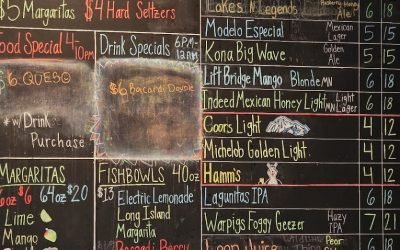 $5 Margaritas
$4 Hard Seltzers
Food Special 4-10PM
$6 QUESO
* w/ Drink
Purchase
Drink Specials 6PM-
12AM
$6 Bacardi Double
MARGARITAS
$6 64oz $20
Lime
Mango
FISHBOWLS 40oz
$13 Electric Lemonade
Long Island
Margarita
Berry
Lakes N Legends Ale 6 18
Modelo Especial Mexican Lager 5 15
Kona Big Wave Golden Ale 5 15
Lift Bridge Mango Blonde MN 6 18
Indeed Mexican Honey Light MN Lager 6 18
Coors Light 4 12
Michelob Golden Light 4 12
Hamm's 4 12
Lagunitas IPA 6 18
Warpigs Foggy Geezer Hazy IPA 7 21
Loon Juice Pear 6 18